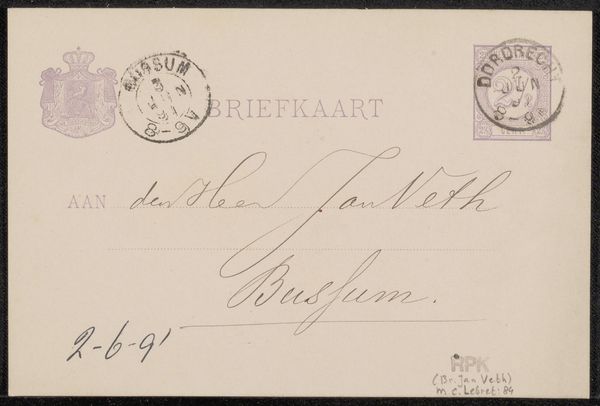 BUSSUM
DORDRECHT
2 JUN
BRIEFKAART
AAN den Heer Jan Veth
Bussum.
2-6-91
RPK
(Br. Jan Veth)
M.C. Lebret: 84